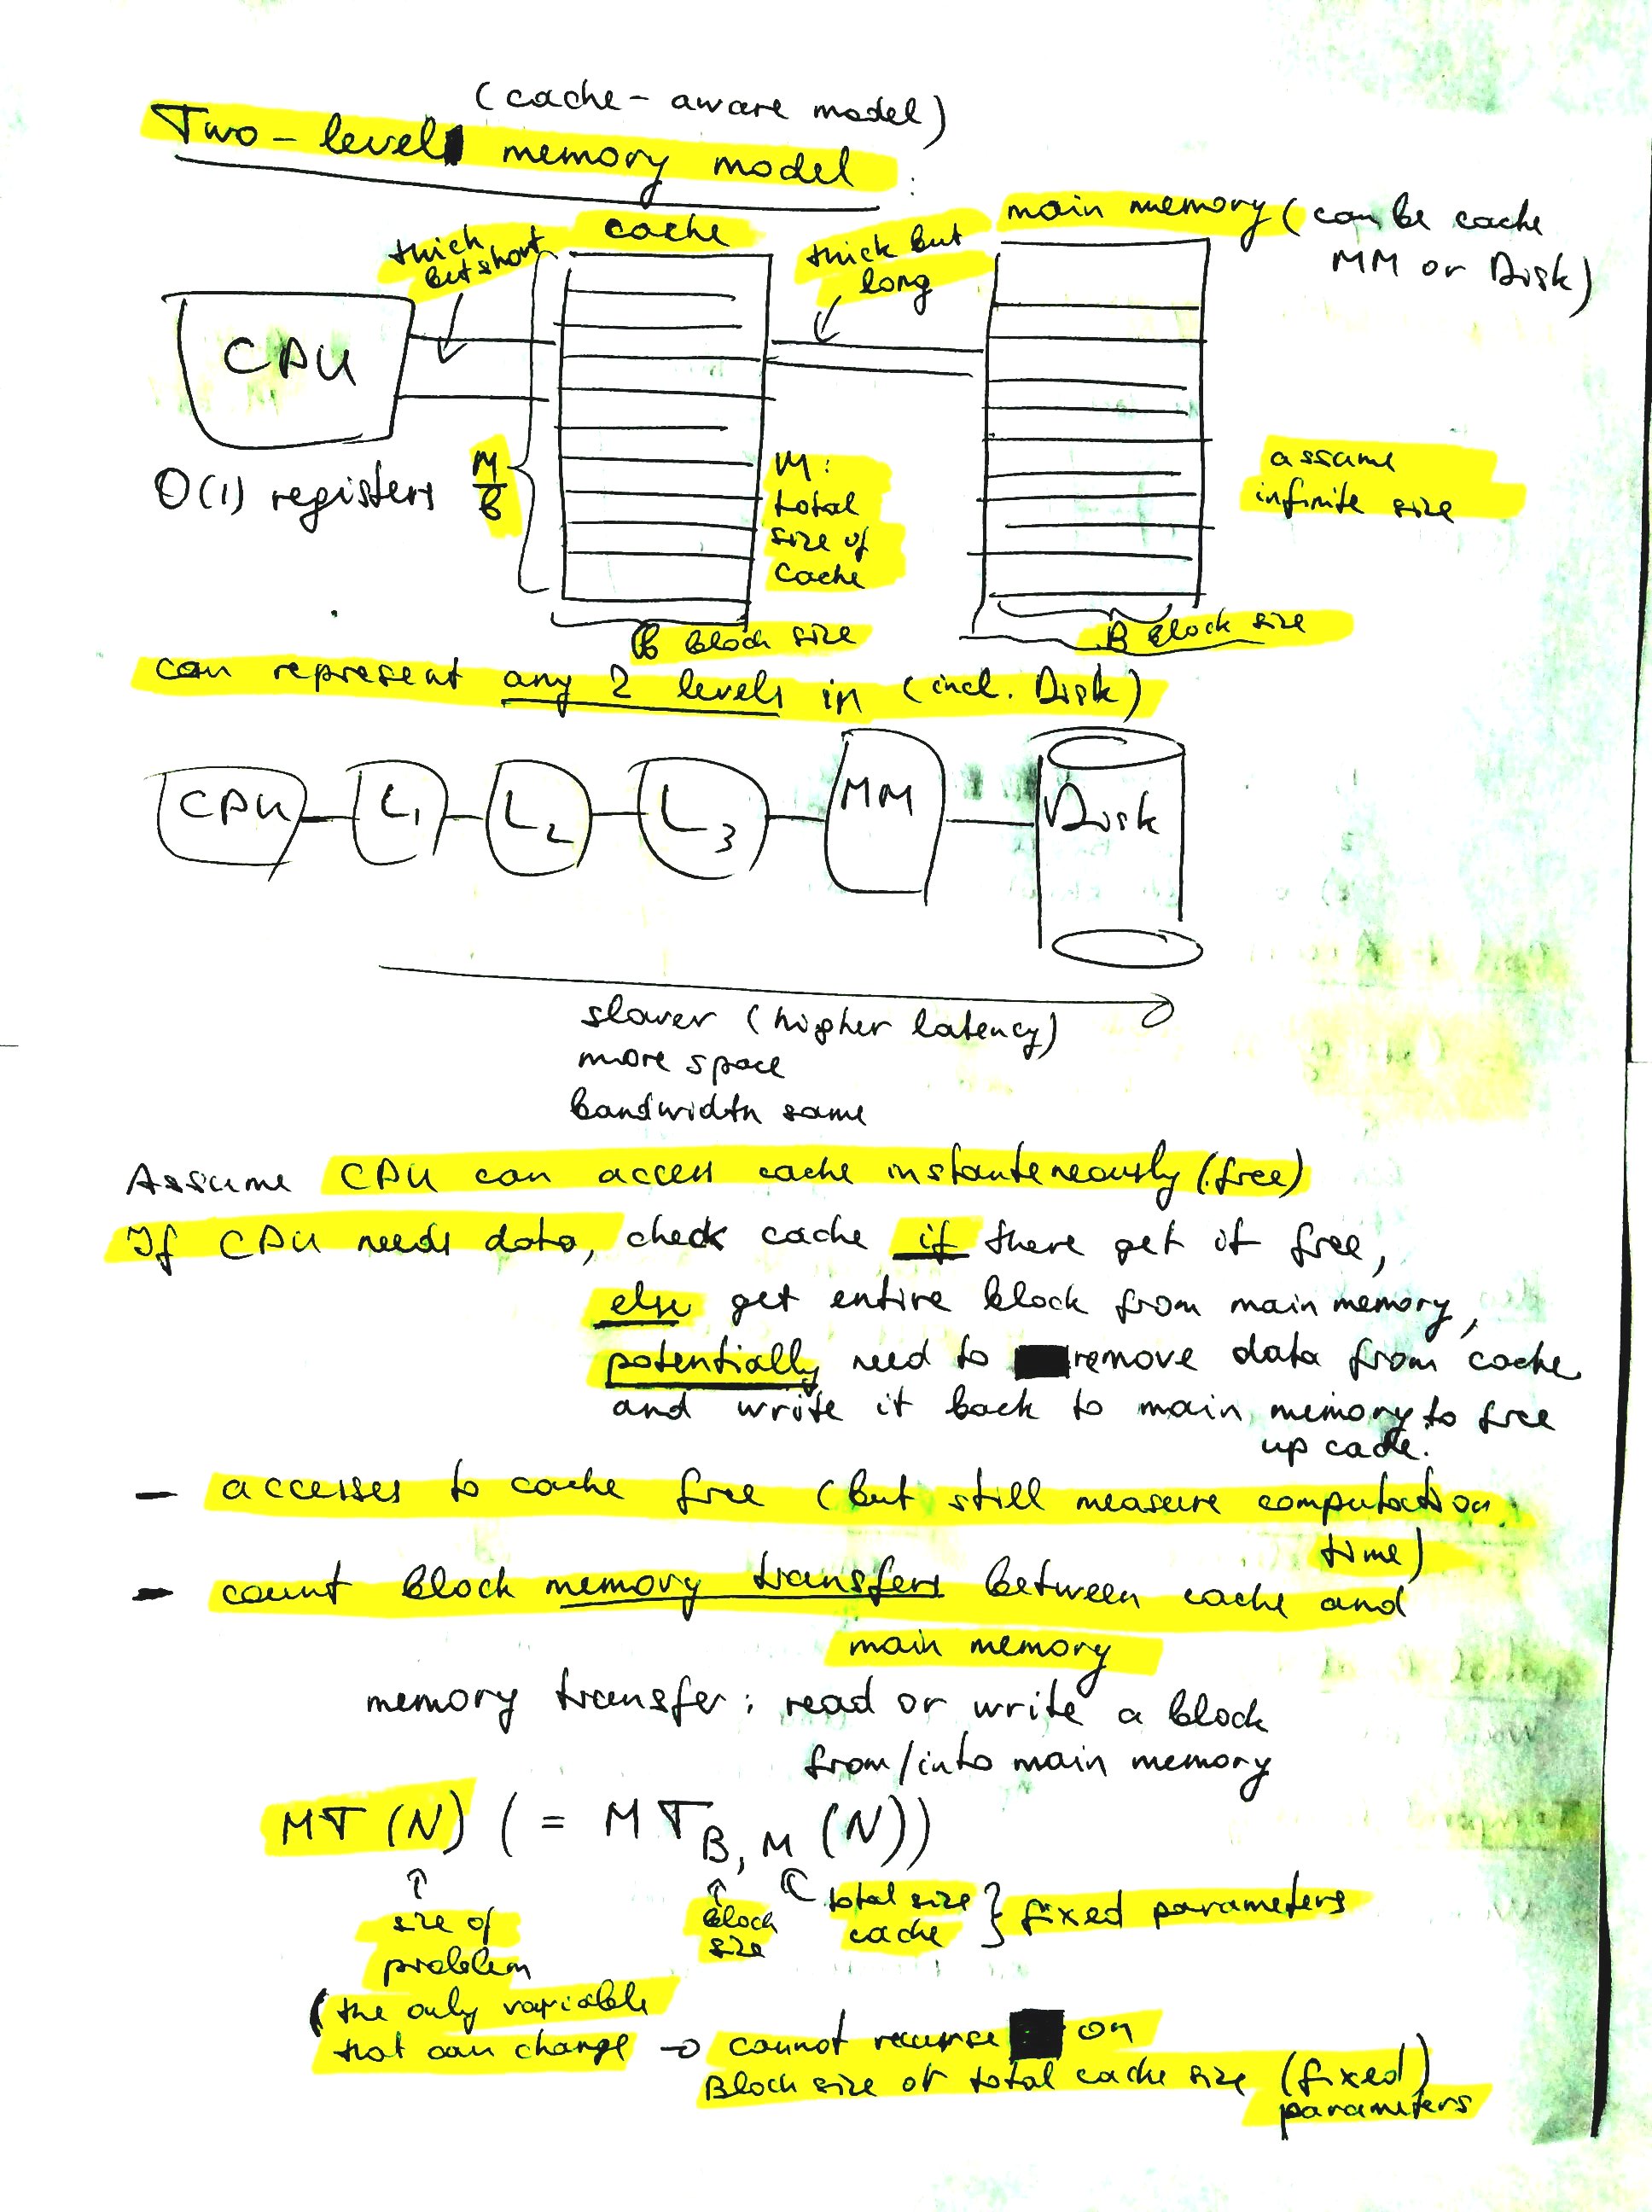 (cache - aware model)
Two - level memory model :
cache
main memory (can be cache
MM or Disk)
thick
but short
thick but
long
CPU
O(1) registers
M
B
M:
total
size of
cache
assume
infinite size
B block size
B block size
can represent any 2 levels in (incl. Disk)
CPU L1 L2 L3 MM Disk
slower (higher latency)
more space
bandwidth same
Assume CPU can access cache instanteneously (free)
If CPU needs data, check cache if there get it free,
else get entire block from main memory,
potentially need to remove data from cache
and write it back to main memory to free
up cache.
- accesses to cache free (but still measure computation
time)
- count block memory transfers between cache and
main memory
memory transfer: read or write a block
from/into main memory
MT (N) ( = MT B, M (N))
size of
problem
block
size
total size
cache } fixed parameters
(the only variable
that can change → cannot recurse on
Block size or total cache size (fixed)
parameters